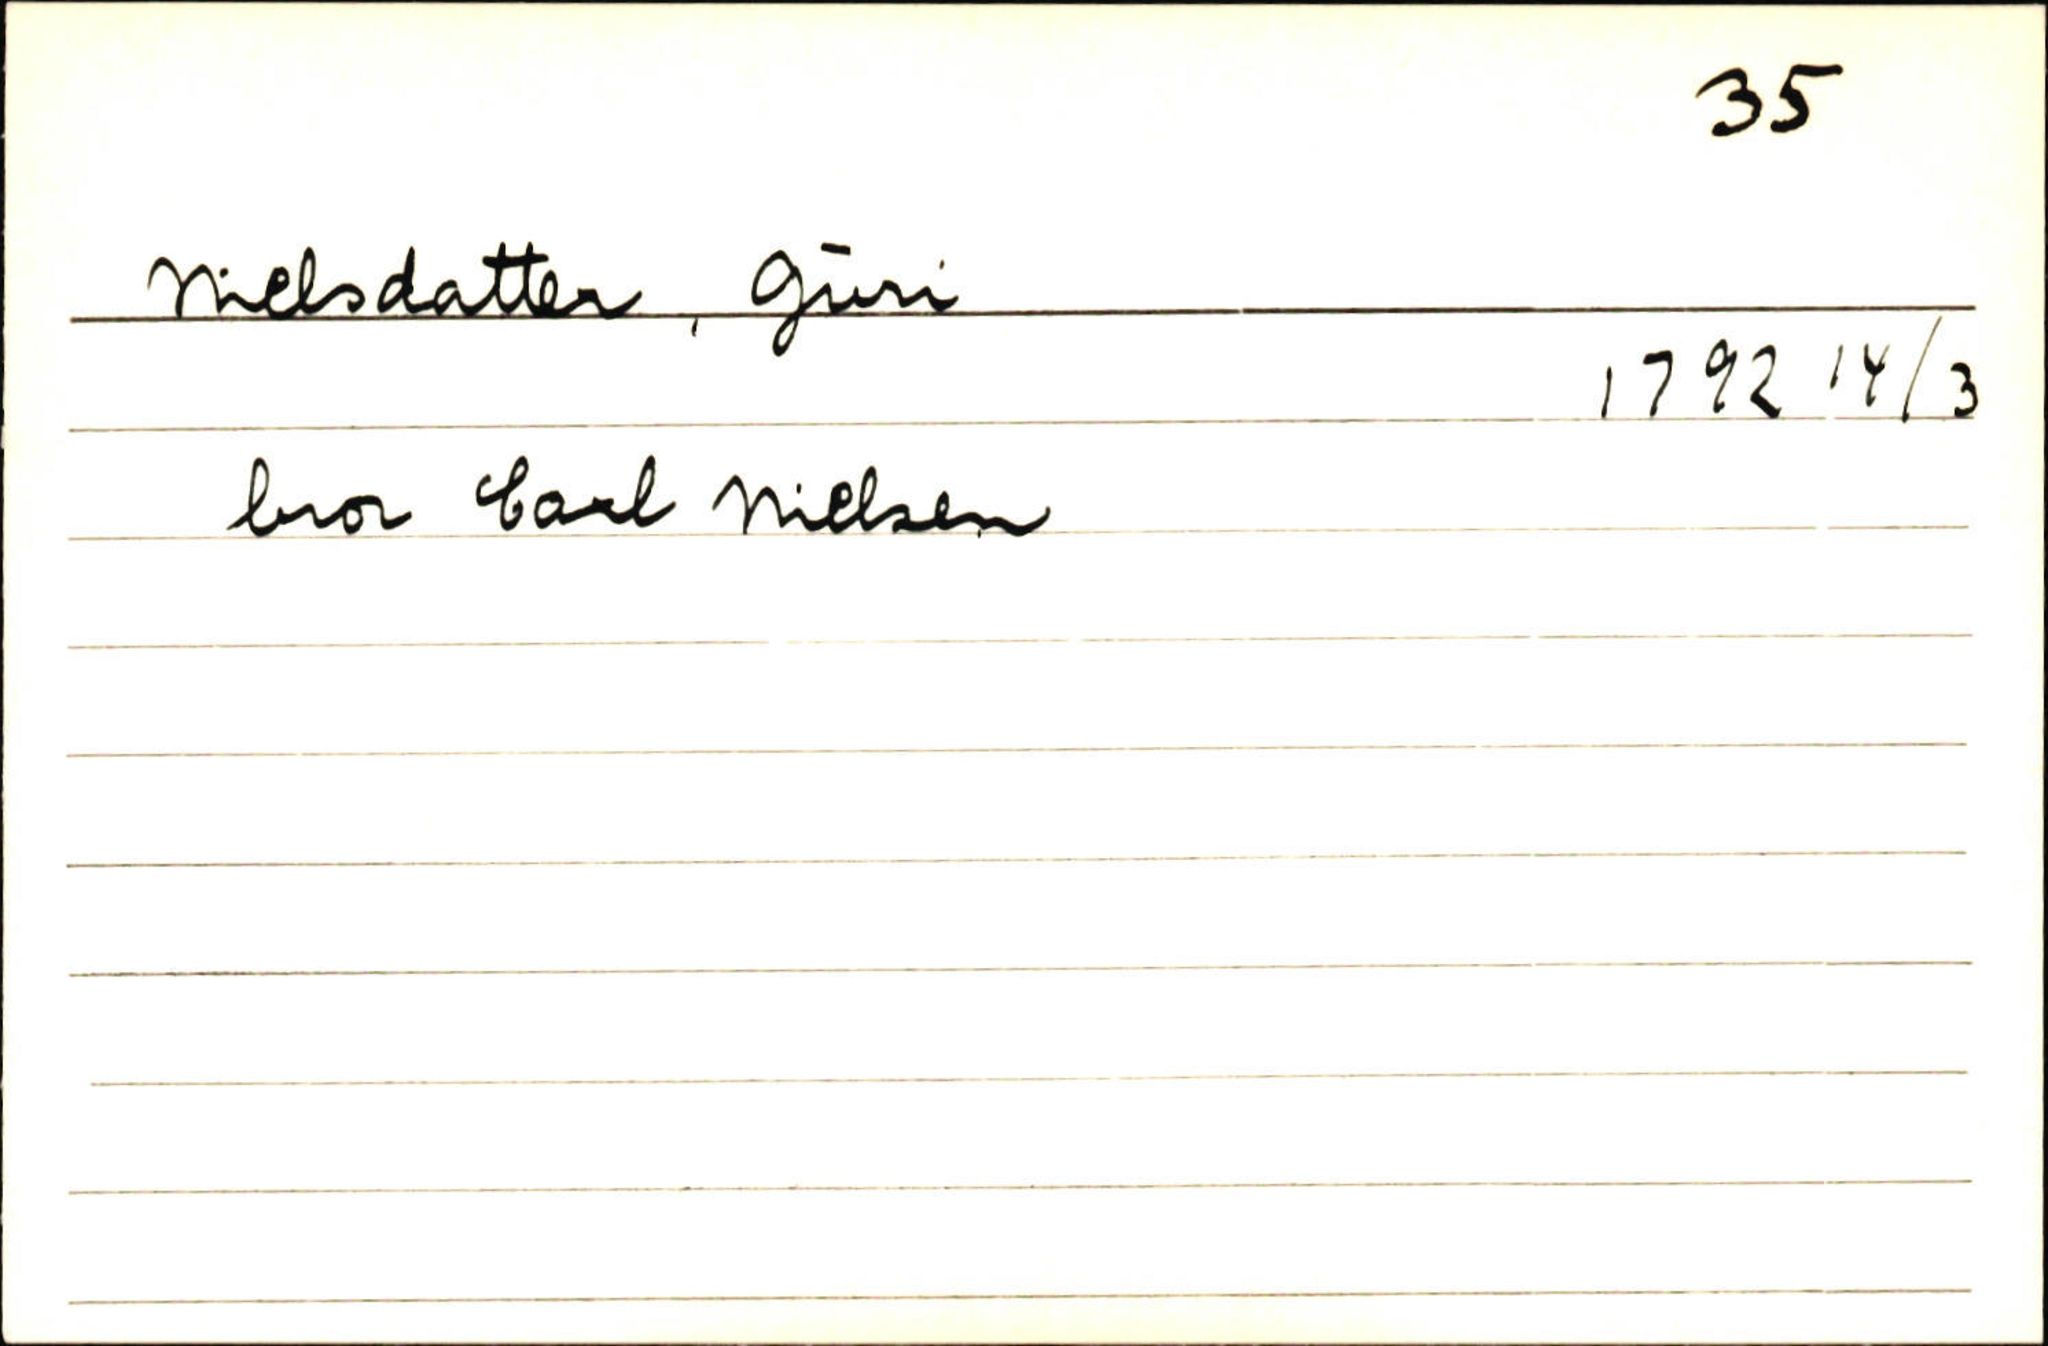 35
Nielsdatter, Guri
1792 14/3
bror Carl Nielsen